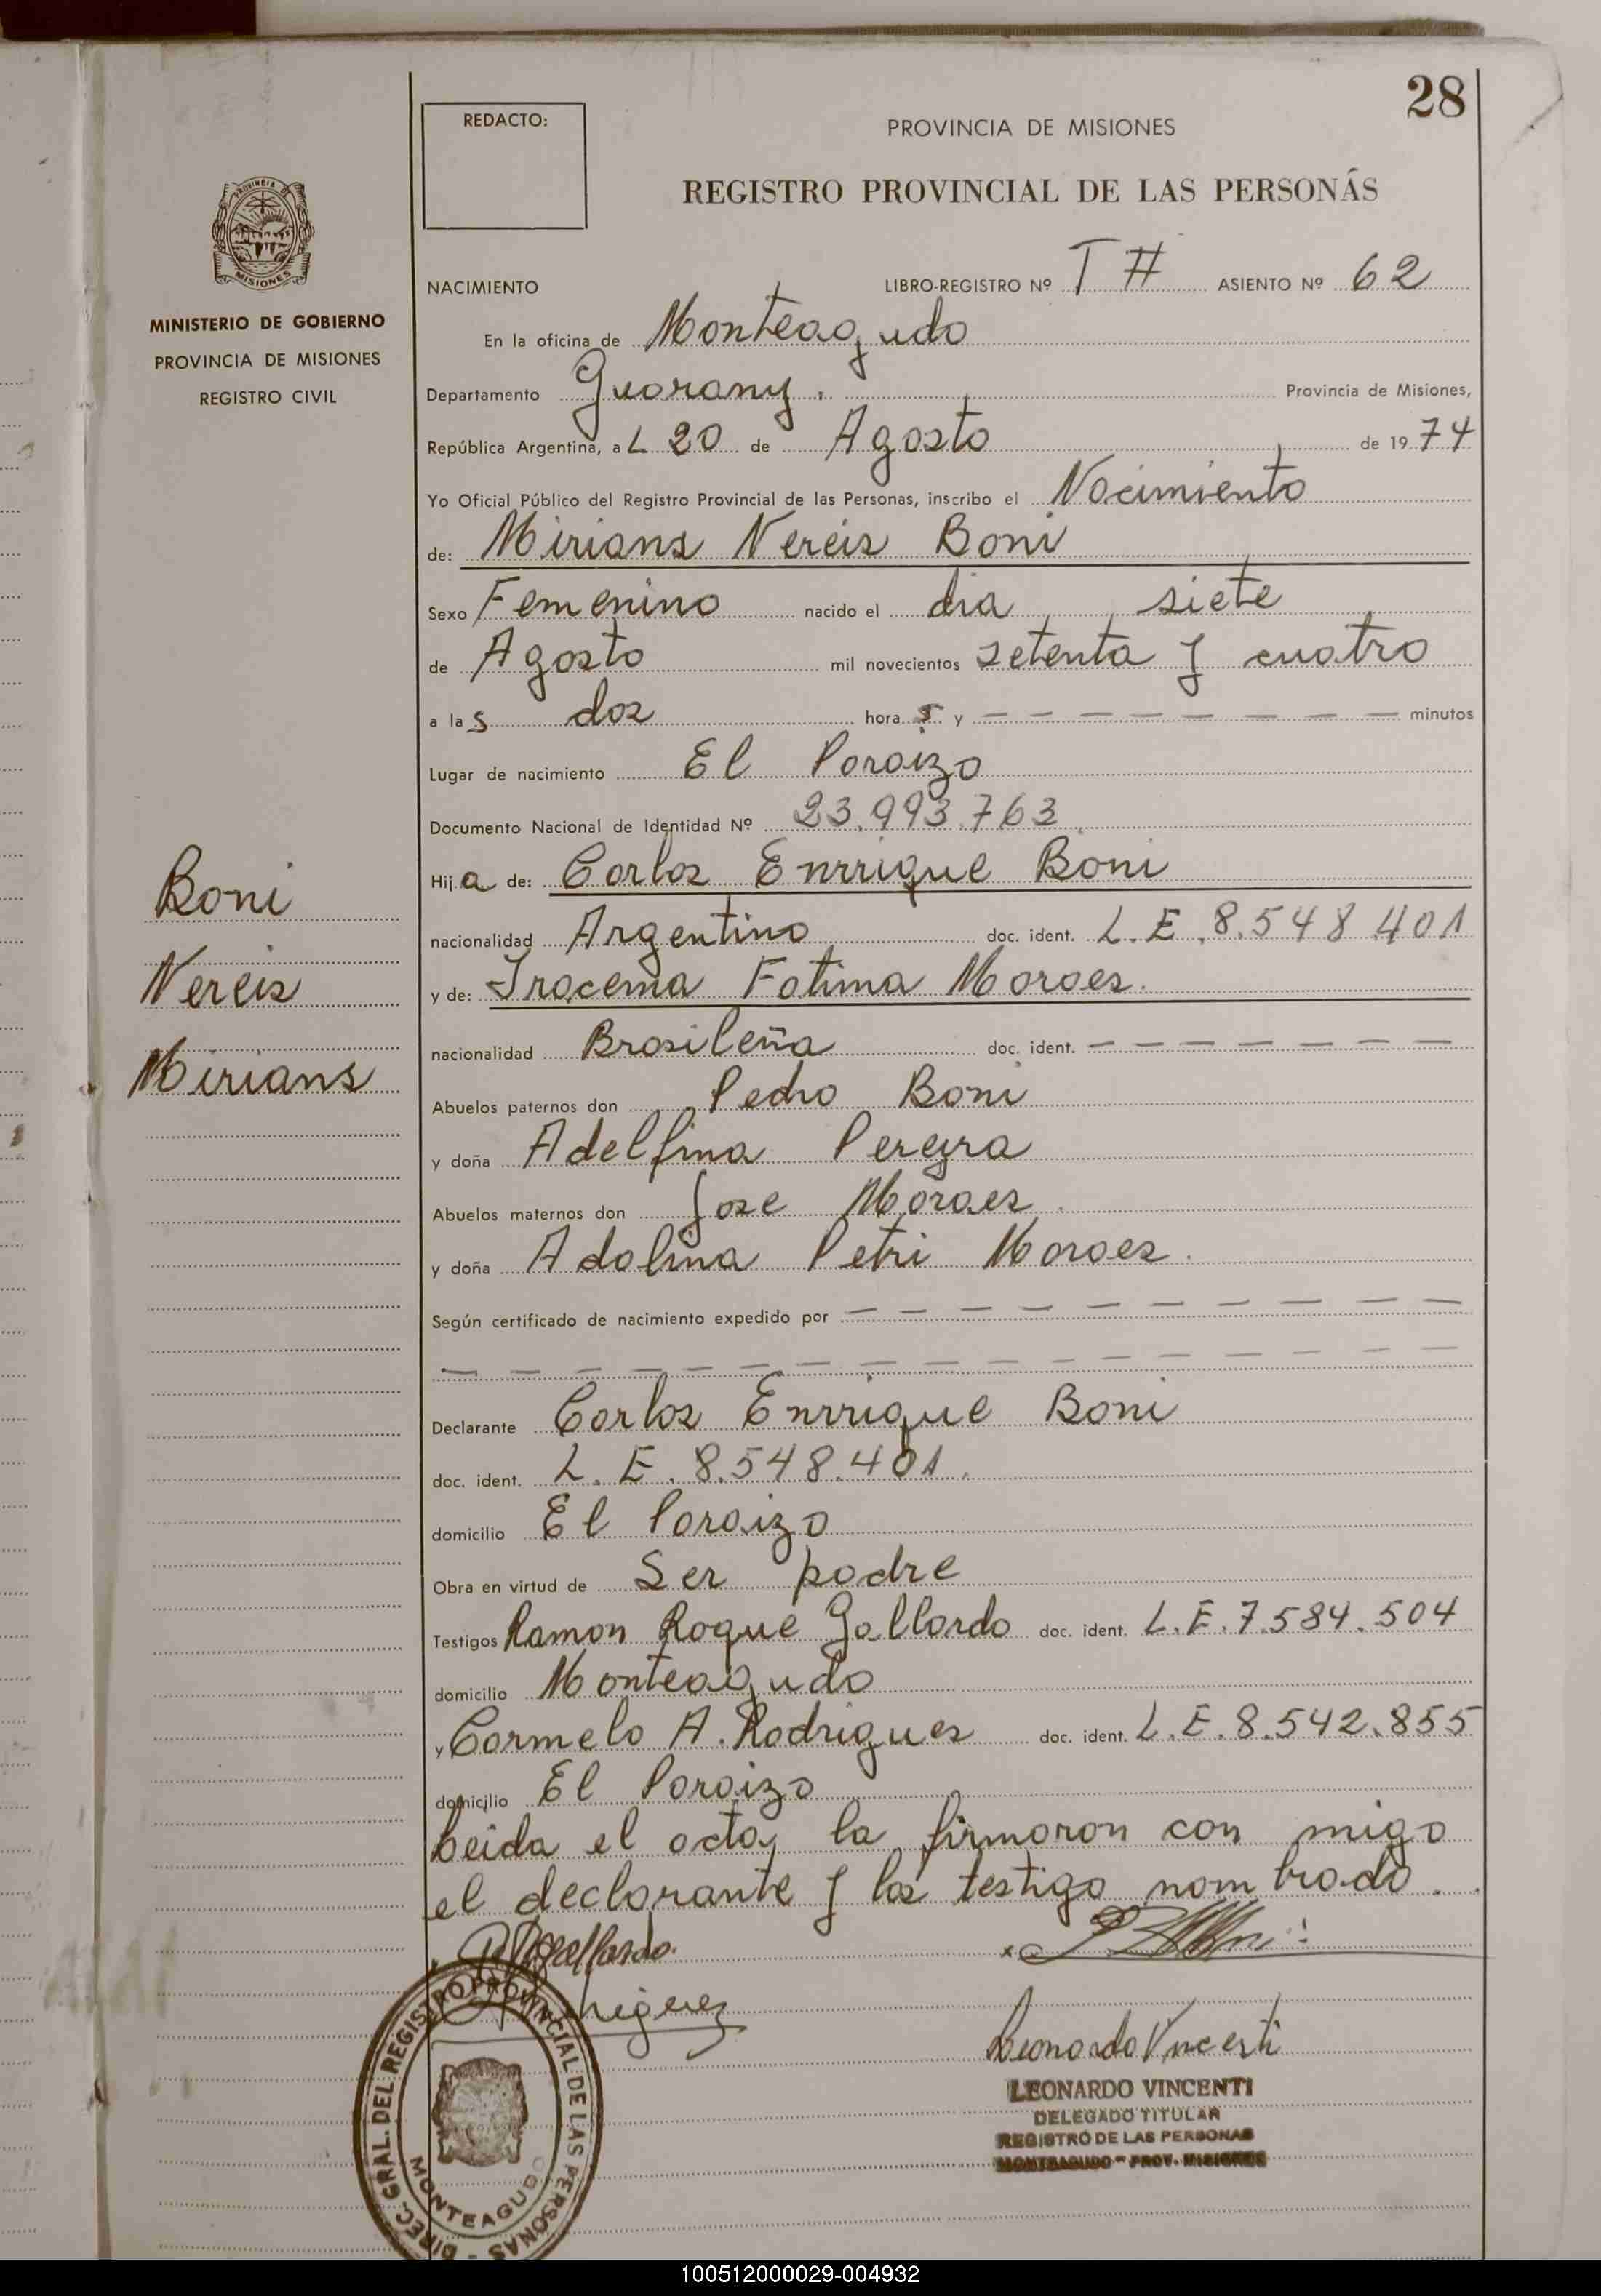 28
REDACTO:
PROVINCIA DE MISIONES
REGISTRO PROVINCIAL DE LAS PERSONAS
MISIONES
MINISTERIO DE GOBIERNO
PROVINCIA DE MISIONES
REGISTRO CIVIL
NACIMIENTO LIBRO-REGISTRO Nº T # ASIENTO Nº 62
En la oficina de Monteagudo
Departamento Guarany. Provincia de Misiones,
República Argentina, a L 20 de Agosto de 1974
Yo Oficial Público del Registro Provincial de las Personas, inscribo el Nacimiento
de: Mirians Nereis Boni
Sexo Femenino nacido el dia siete
de Agosto mil novecientos setenta y cuatro
a las dos horas y — — — — — — — — minutos
Lugar de nacimiento El Paraizo
Documento Nacional de Identidad Nº 23.993.763
Hija de: Carlos Enrrique Boni
nacionalidad Argentino doc. ident. L.E.8.548 401
y de: Iracema Fatima Moraes.
nacionalidad Brasileña doc. ident. — — — — — — —
Abuelos paternos don Pedro Boni
y doña Adelfina Pereyra
Abuelos maternos don Jose Moraes.
y doña Adolina Petri Moraes.
Según certificado de nacimiento expedido por — — — — — — — — — —
— — — — — — — — — — — — — — —
Declarante Carlos Enrrique Boni
doc. ident. L.E.8.548.401.
domicilio El Paraizo
Obra en virtud de Ser padre
Testigos Ramon Roque Gallardo doc. ident. L.E.7.584.504
domicilio Monteagudo
y Carmelo A. Rodrigues doc. ident. L.E.8.542.855
domicilio El Paraizo
Leida el acta, la firmaron con migo
el declarante y los testigo nombrado.
Boni
Nereis
Mirians
Leonardo Vincenti
LEONARDO VINCENTI
DELEGADO TITULAR
REGISTRO DE LAS PERSONAS
MONTEAGUDO - PROV. MISIONES
DIREC. GRAL. DEL REGISTRO PROVINCIAL DE LAS PERSONAS -
MONTEAGUDO
100512000029-004932